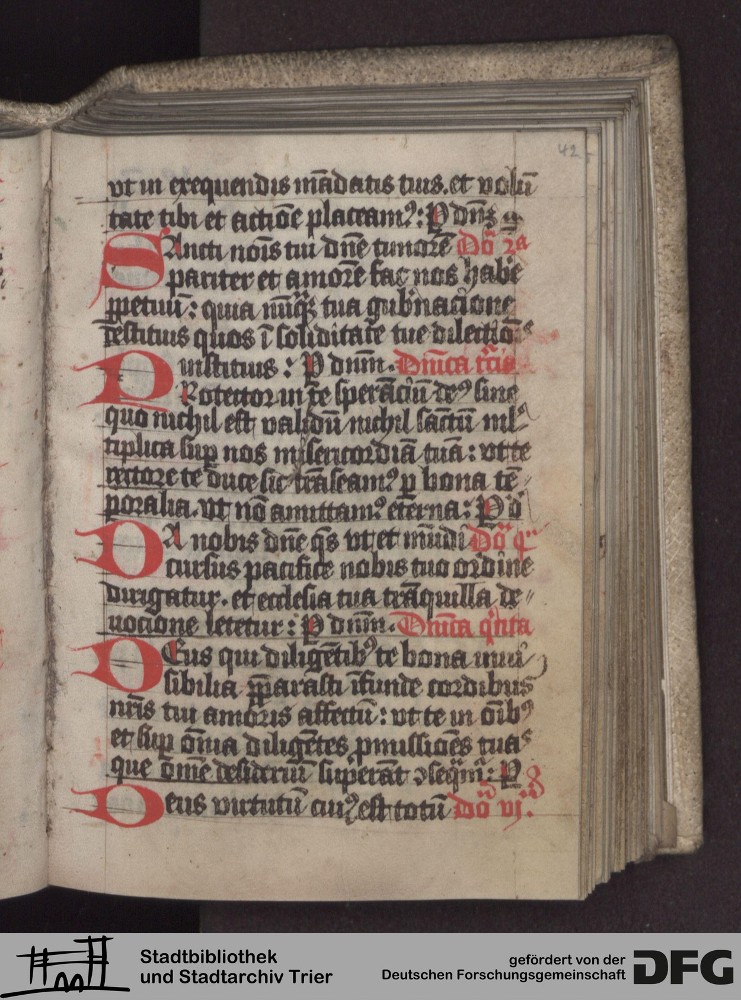 42
vt in exequendis mādatis tuis. et volū
tate tibi et actiōe placeamꝰ: P dn̄3
SAncti noīs tui dn̄e timorē Dō 2a
pariter et amorē fac nos habe
ꝑpetuū: quia nūqꝫ tua gub'nacione
destituis quos ī soliditate tue dilectiōs
instituis: P dnm̄. Dn̄ica t'cia
PRotector in te sperāciū deꝰ sine
quo nichil est validū nichil sāctū ml'
tiplica sup nos misericordiā tuā: vt te
rectore te duce sic trāseamꝰ ꝑ bona tē
poralia. vt nō amittamꝰ eterna: P d
DA nobis dn̄e q̄s vt et mūdi Dō q
cursus pacifice nobis tuo ordine
dirigatur. et ecclesia tua trāquilla de〃
uocione letetur: P dnm̄. Dn̄ica q'nta
DEus qui diligētibꝰ te bona inui
sibilia p̄parasti īfunde cordibus
nr̄is tui amoris affectū: vt te in ōibꝰ
et sup ōm̄ia diligētes pmissiōes tuas
que ōm̄e desideriū superāt ꝯseqm̄r: P
Deus virtutū cuiꝰ est totū Dō vj.
Stadtbibliothek
und Stadtarchiv Trier
gefördert von der
Deutschen Forschungsgemeinschaft
DFG